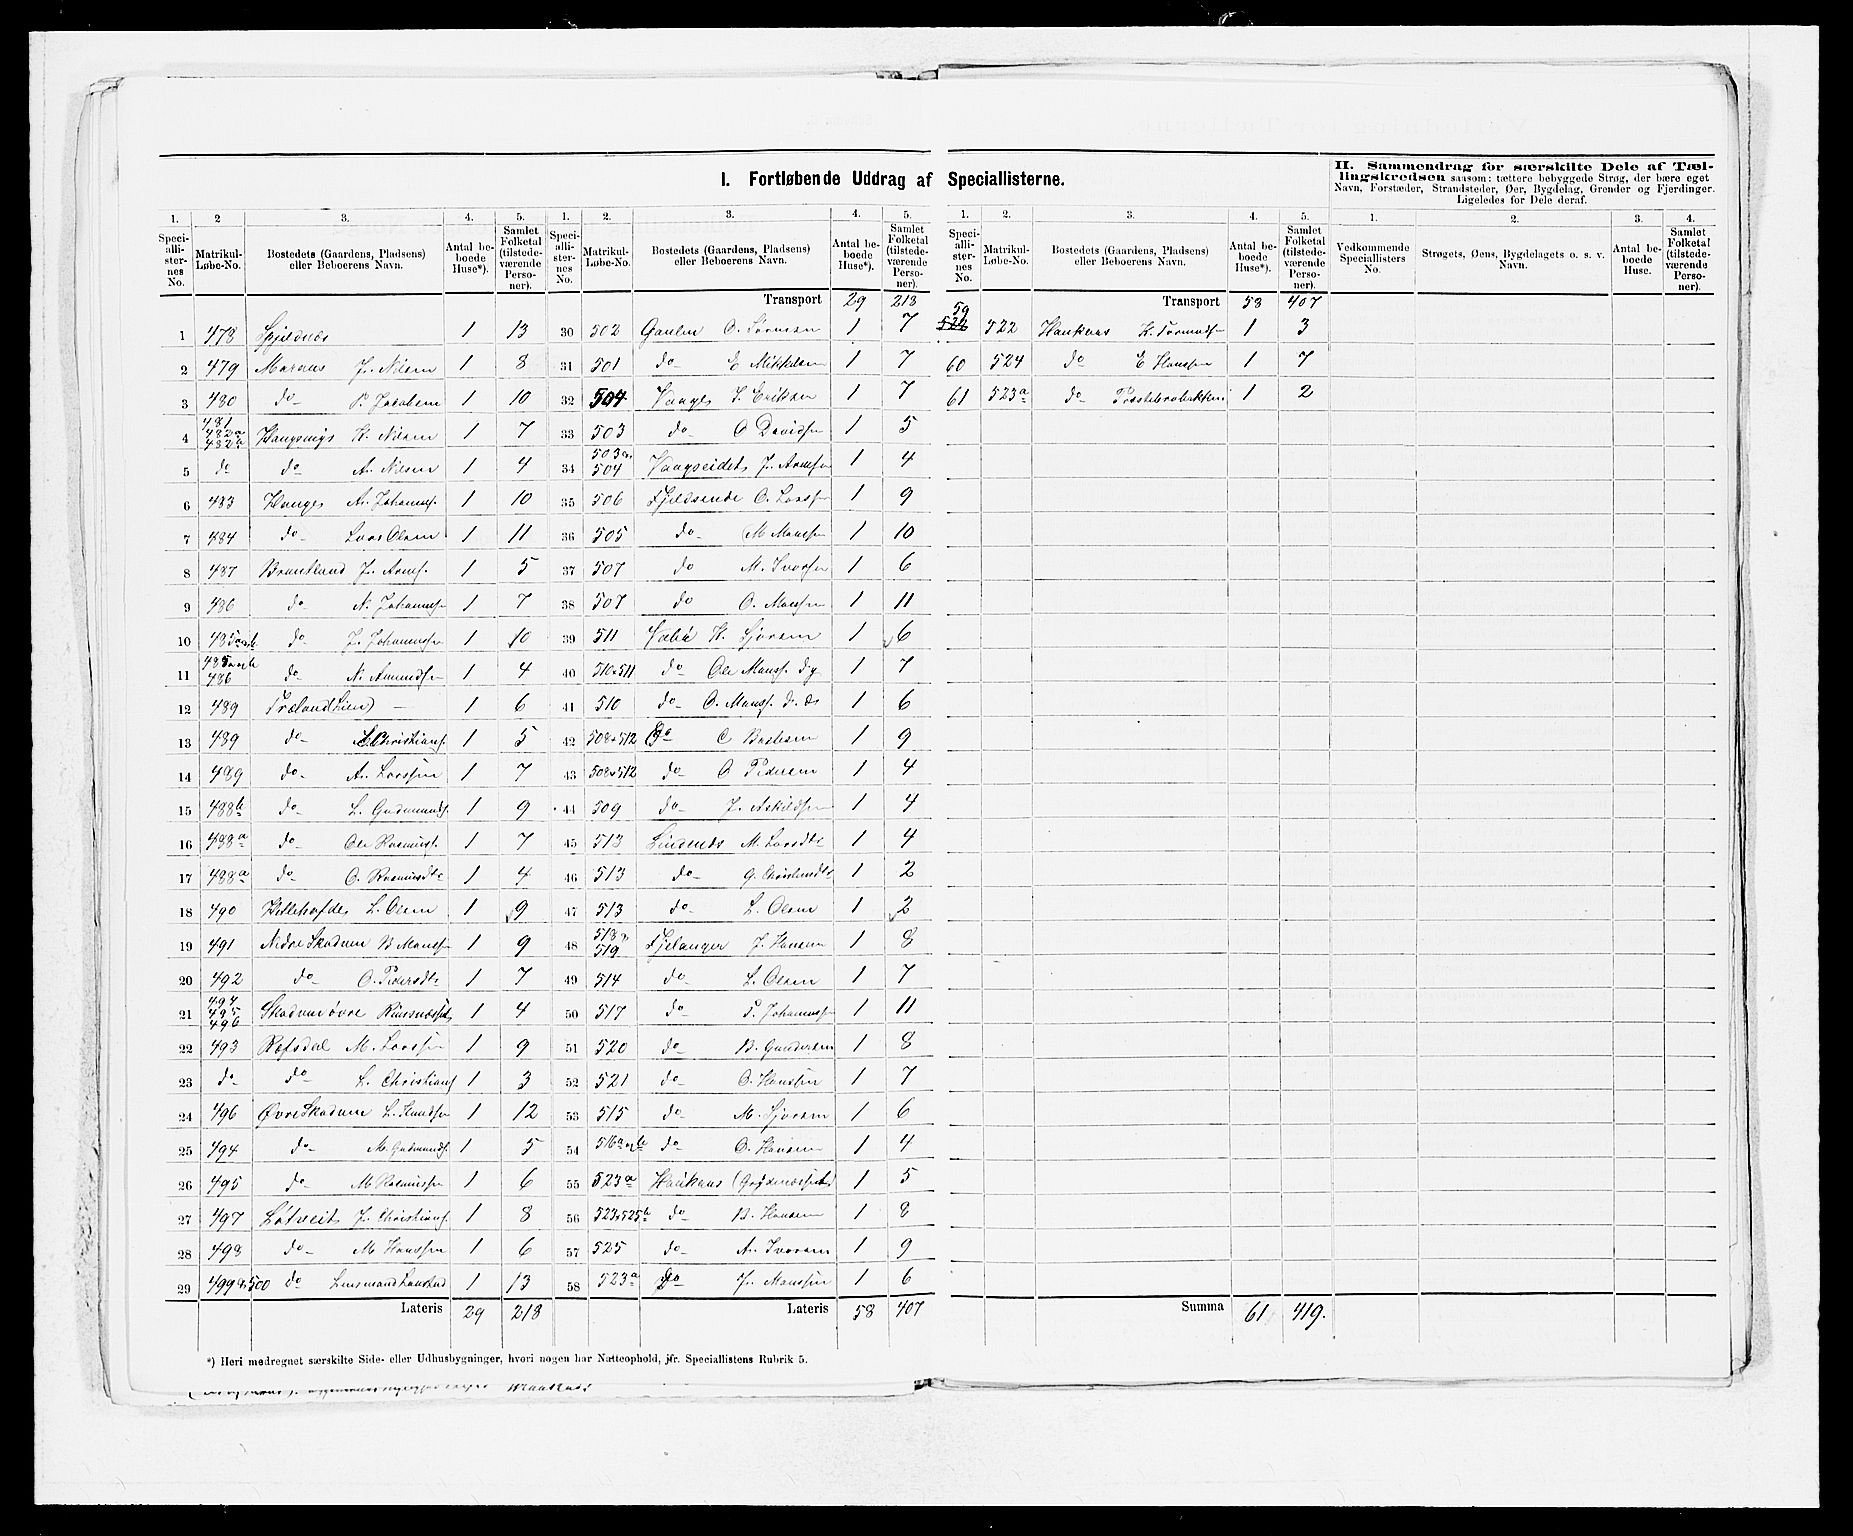 I. Fortløbende Uddrag af Speciallisterne.
II. Sammendrag for særskilte Dele af Tæl-
lingskredsen saasom: tættere bebyggede Strøg, der bære eget
Navn, Forstæder, Strandsteder, Øer, Bygdelag, Grender og Fjerdinger.
Ligeledes for Dele deraf.
1. 2 3. 4. 5.
Speciallisternes No. Matrikul-Løbe-No. Bostedets (Gaardens, Pladsens) eller Beboerens Navn. Antal beboede Huse*). Samlet Folketal (tilstedeværende Personer).
1 478 Spjeldnæs 1 13
2 479 Marøens J. Nilsen 1 8
3 480 do P. Jacobsen 1 10
4 481 482a 482b H. Nilsen 1 7
5 do do A. Nilsen 1 4
6 483 Hauges A. Johannes. 1 10
7 484 do Lars Olsen 1 11
8 487 J. Arnes. 1 5
9 486 do N. Johanness 1 7
10 485 do J. Johannessen 1 10
11 485 486 do N. Amundsen 1 4
12 489 Træland (Lien) — 1 6
13 489 do L. Christians. 1 5
14 489 do A. Larssen 1 7
15 488b do L. Gudmunds. 1 9
16 488a do Ole Rasmuss. 1 7
17 488a do O. Rasmusdtr 1 4
18 490 L. Olsen 1 9
19 491 Nedre Skodvin B Monssen 1 9
20 492 do O. Pedersdtr 1 7
21 494 495 496 Skodvin øvre 1 4
22 493 Refsdal M. Larssen 1 9
23 do do L. Christians 1 3
24 496 Øvre Skodvin L. Knudsen 1 12
25 494 do M. Gudmunds. 1 5
26 495 do M Rasmussen 1 6
27 497 Løtveit J. Christians. 1 8
28 498 do M Hanssen 1 6
29 499 & 500 do 1 13
Lateris 29 218
1. 2. 3. 4. 5.
Speciallisternes No. Matrikul-Løbe-No. Bostedets (Gaardens, Pladsens) eller Beboerens Navn. Antal beboede Huse*). Samlet Folketal (tilstedeværende Personer).
Transport 29 218
30 502 1 7
31 501 do E Mikkelsen 1 7
32 504 Vaages J. Eriksen 1 7
33 503 do O Davidsen 1 5
34 503 504 Vaagseidet J. Arnesen 1 4
35 506 Fjeldsende O. Larssen 1 9
36 505 do M Monssen 1 10
37 507 do M. Iversen 1 6
38 507 do O. Monssen 1 11
39 511 1 6
40 510 & 511 do Ole Monss. 1 7
41 510 do O. Monss. 1 6
42 508 & 512 do 1 9
43 508 & 512 do O Pedersen 1 4
44 509 do J. Askildsen 1 4
45 513 Lindenæs M. Larsdtr 1 4
46 513 do G. Christensdtr 1 2
47 513 do L. Olsen 1 2
48 518 519 Fjelanger J. Hansen 1 8
49 514 do L. Olsen 1 7
50 517 do P. Johannessen 1 11
51 520 do B. Gundersen 1 8
52 521 do O. Hanssen 1 7
53 515 do 1 6
54 516 do O. Hansen 1 4
55 523a Haukaas 1 5
56 523 & 525 do B. Hansen 1 8
57 525 do A. Iversen 1 9
58 523a do J. Monssen 1 6
Lateris 58 407
1. 2. 3. 4. 5.
Speciallisternes No. Matrikul-Løbe-No. Bostedets (Gaardens, Pladsens) eller Beboerens Navn. Antal beboede Huse*). Samlet Folketal (tilstedeværende Personer).
Transport 58 407
59 522 Haukaas 1 3
60 524 do E Hanssen 1 7
61 523a do 1 2
Summa 61 419.
1. 2. 3. 4.
Vedkommende Speciallisters No. Strøgets, Øens, Bygdelagets o. s. v. Navn. Antal beboede Huse. Samlet Folketal (tilstedeværende Personer).
*) Heri medregnet særskilte Side- eller Udhusbygninger, hvori nogen har Natteophold, jfr. Speciallistens Rubrik 5.